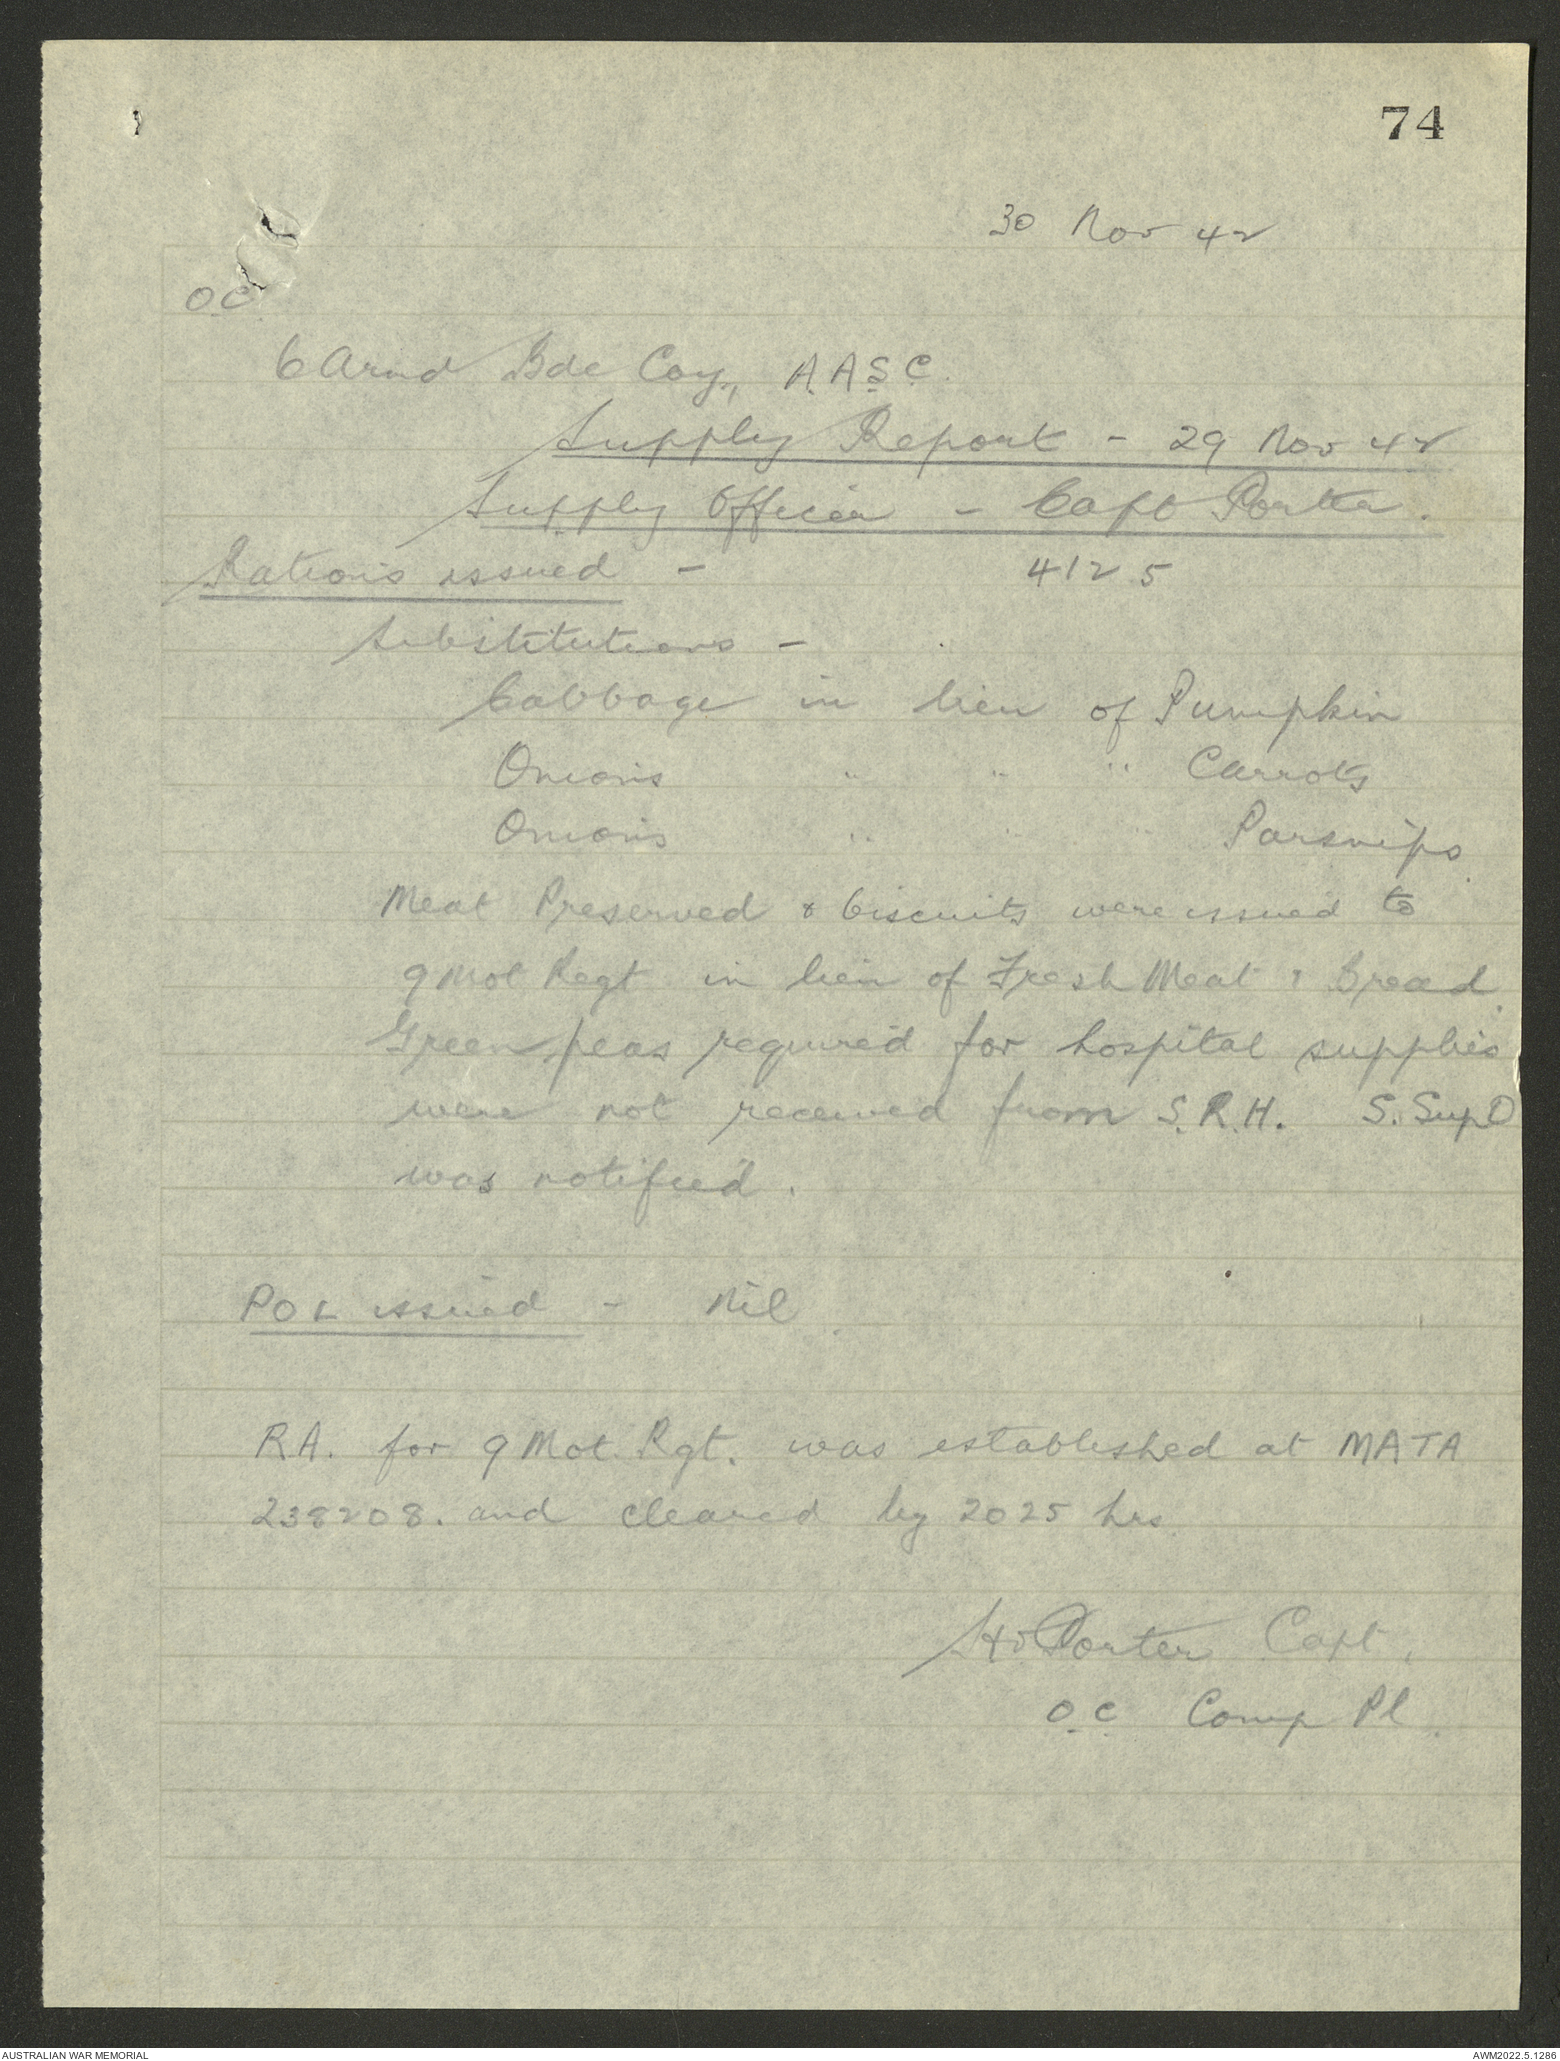 74
30 Nov 42
O.C.
6 Armd Bde Coy., A.A.S.C.
Supply Report - 29 Nov 42
Supply Officer - Capt Porter.
Rations issued - 4125
Substitutions -
Cabbage in lieu of Pumpkin
Onions " " " Carrots
Onions " " " Parsnips.
Meat Preserved & biscuits were issued to
9 Mot Regt in lieu of Fresh Meat & Bread.
Green peas required for hospital supplies
were not received from S.R.H. S.SupO
was notified.
POL issued - Nil.
R.A. for 9 Mot. Rgt. was established at MATA
238208. and cleared by 2025 hrs.
Porter Capt.
O.C. Comp Pl.
AUSTRALIAN WAR MEMORIAL
AWM2022.5.1286